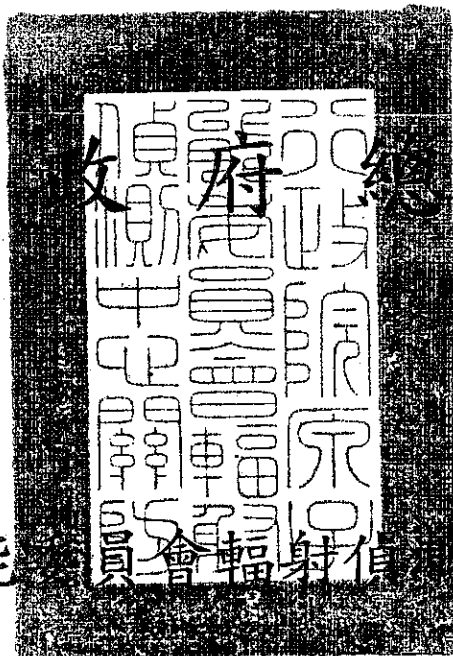 府 總
行政院原子
能委員會輻射
偵測中心關防
員會輻射偵